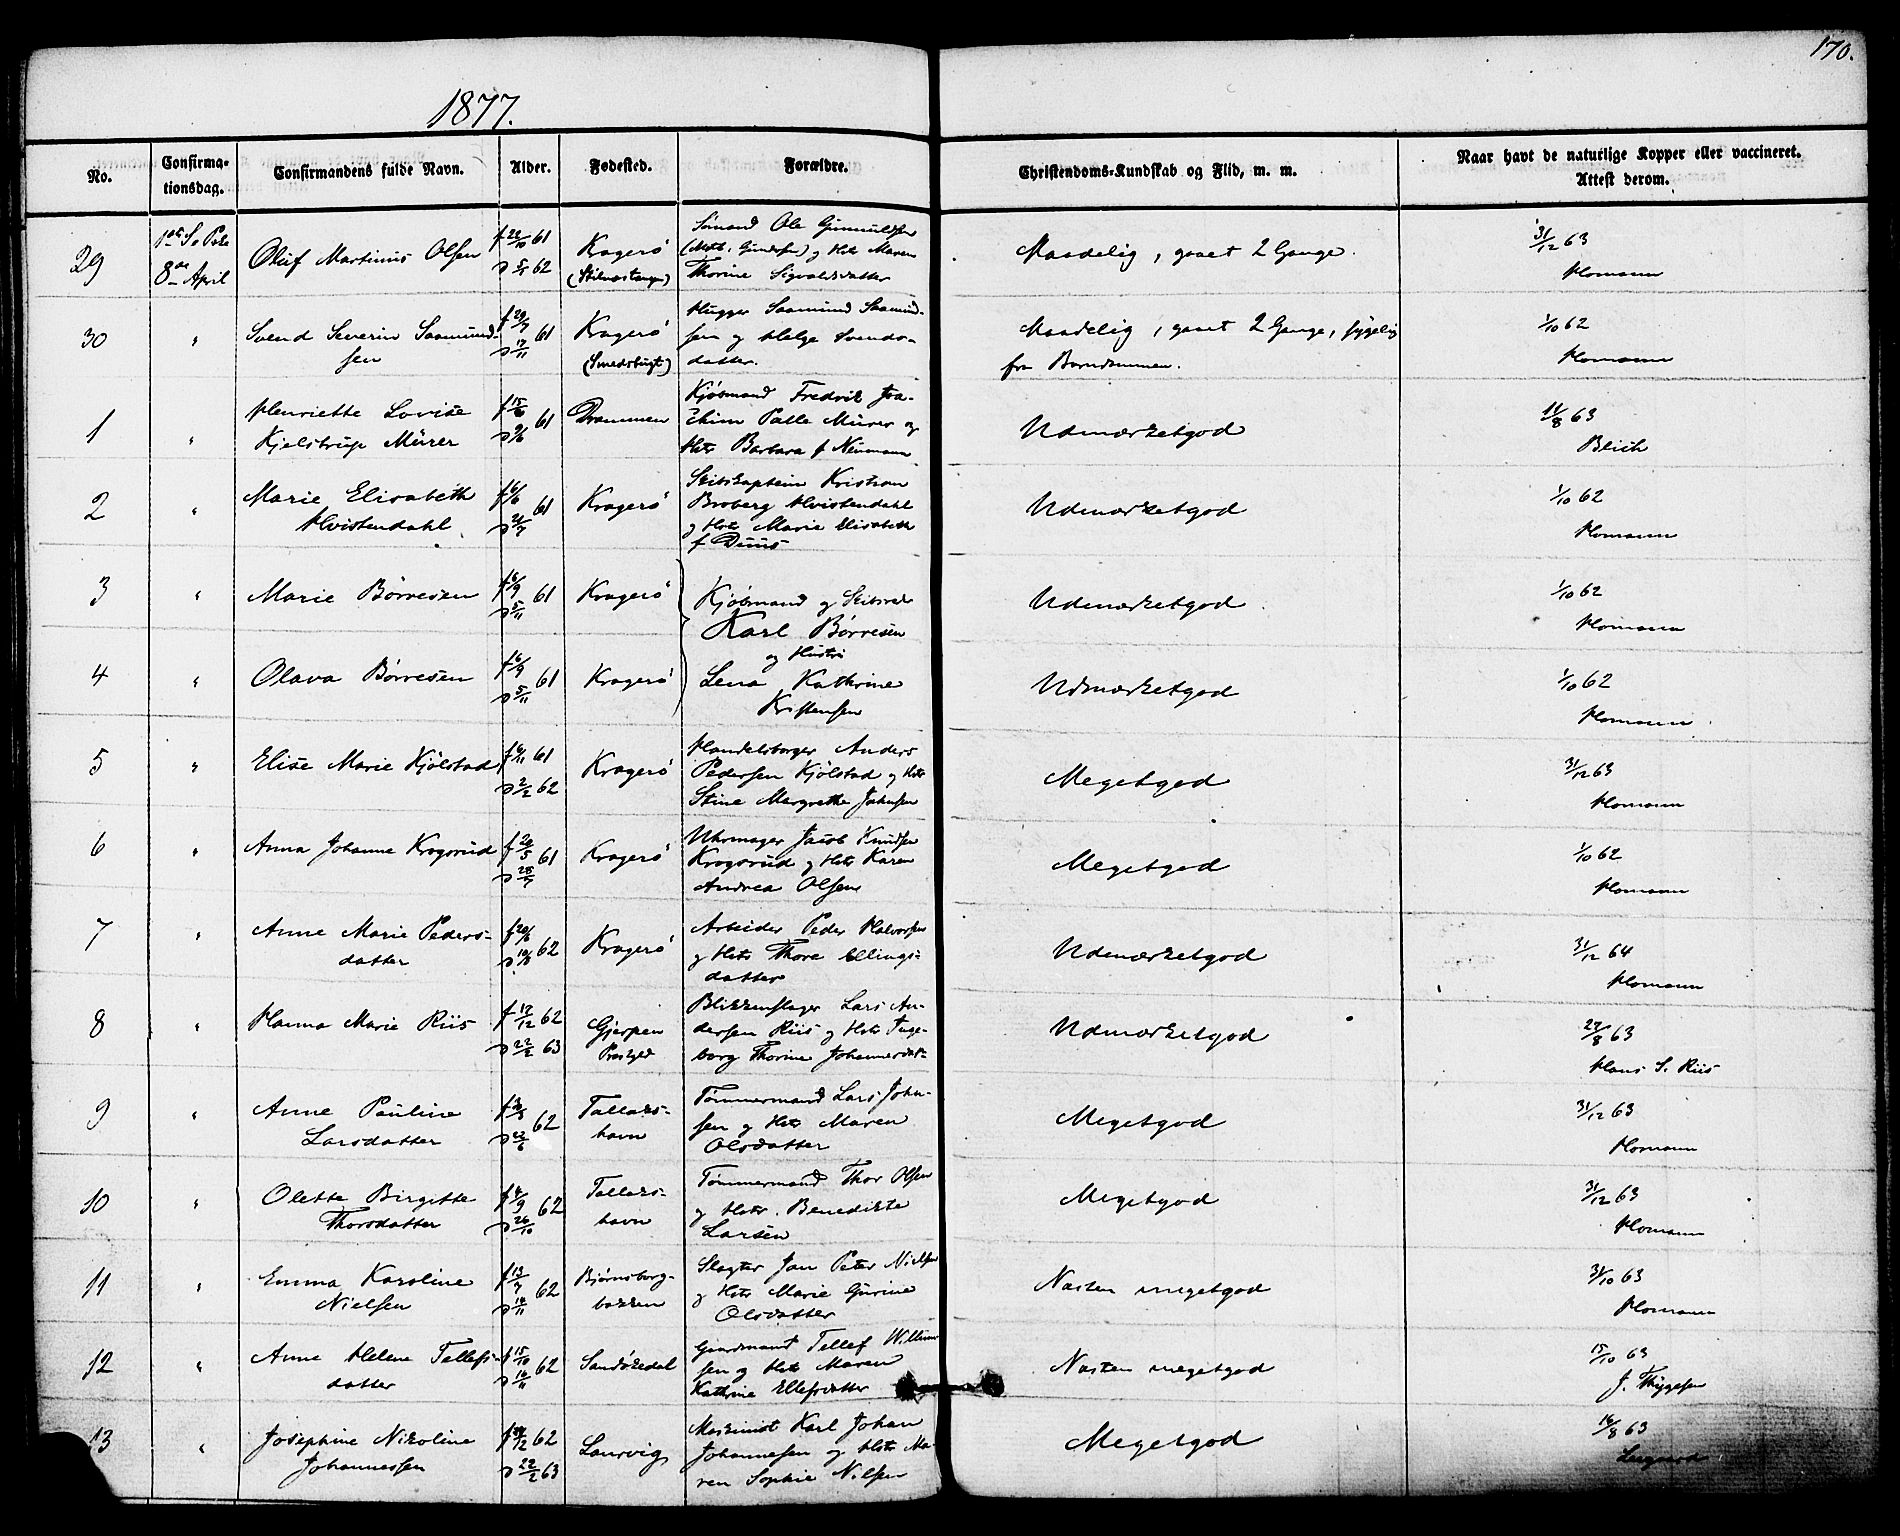 170.
1877.
No.
Confirma-
tionsdag.
Confirmandens fulde Navn.
Alder.
Fødested.
Forældre.
Christendoms-Kundskab og Flid, m. m.
Naar havt de naturlige Kopper eller vaccineret.
Attest derom.
29
8de April
Oluf Martinius Olsen
f 22/10 61
D 5/1 62
Kragerö
Sömand Ole
og Maren
Thorine Sigvaldsdatter
Maadelig, gaaet 2 Gange.
31/12 63
Homann
30
"
Svend Severin Saamund-
sen
f 29/7
D 17/11 61
Kragerö
(Smedsbugt)
Hugger Saamund Saamund-
sen og Helge Svends-
datter.
Maadelig, gaaet 2 Gange, sygelig
fra Barndommen.
1/10 62
Homann
1
"
Henriette Lovise
Kjelstrup Mürer
f 15/6
D 9/8 61
Drammen
Kjöbmand Fredrik Joa-
chim Palle Mürer og
Hstr Barbara f Neumann
Udmærketgod
11/8 63
Blich
2
"
Marie Elisabeth
Hvistendahl
f 6/6
D 21/7 61
Kragerö
Skibskaptein Kristian
Broberg Hvistendahl
og Hstr Marie Elisabeth
f Duus
Udmærketgod
1/10 62
Homann
3
"
Marie Börresen
f 6/9
D 5/11 61
Kragerö
Kjöbmand og Skibsred
Karl Börresen
og Hustru
Lena Kathrine
Kristensen
Udmærketgod
1/10 62
Homann
4
"
Olava Börresen
f 6/9
D 5/11 61
Kragerö
Udmærketgod
1/10 62
Homann
5
"
Elise Marie Kjölstad
f 6/11 61
D 2/2 62
Kragerö
Handelsborger Anders
Pedersen Kjölstad og Hstr
Stine Margrethe Johnsen
Megetgod
31/12 63
Homann
6
"
Anna Johanne Krogsrud
f 20/5
D 28/7 61
Kragerö
Uhrmager Jacob Knudsen
Krogsrud og Hstr Karen
Andrea Olsen
Megetgod
1/10 62
Homann
7
"
Anne Marie Peders-
datter
f 20/6
D 10/8 62
Kragerö
Arbeider Peder Halvorsen
og Hstr Thore Ellings-
datter
Udmærketgod
31/12 64
Homann
8
"
Hanna Marie Riis
f 17/12 62
D 22/2 63
Gjerpen
Blikkenslager Lars An-
dersen Riis og Hstr Inge-
borg Thorine Johannesdat-
Udmærketgod
27/8 63
Hans S. Riis
9
"
Anne Pauline
Larsdatter
62
Tallaks-
havn
Tömmermand Lars John-
sen og Hstr Maren
Olsdatter
Megetgod
31/12 63
Homann
10
"
Olette Birgitte
Thorsdatter
f 4/9
D 26/10 62
Tallaks-
havn
Tömmermand Thor Olsen
og Hstr. Benedikte
Larsen
Megetgod
31/12 63
Homann
11
"
Emma Karoline
Nielsen
f 13/9
D 14/11 62
Bjørnsborg-
bakken
Slagter Jan Peter Nielsen
og Hstr Marie Gurine
Olsdatter
Næsten megetgod
31/10 63
Homann
12
"
Anne Helene Tellefs-
datter
f 15/10
D 16/11 62
Sandökedal
Gaardmand Tellef Willum-
sen og Hstr Maren
Kathrine Ellefsdatter
Næsten megetgod
15/10 63
J. Thygesen
13
"
Josephine Nikoline
Johannessen
62
D 22/2 63
Laurvig
Maskinist Karl Johan
Johannesen og Hstr Ma-
ren Sophie Nilsen
Megetgod
16/8 63